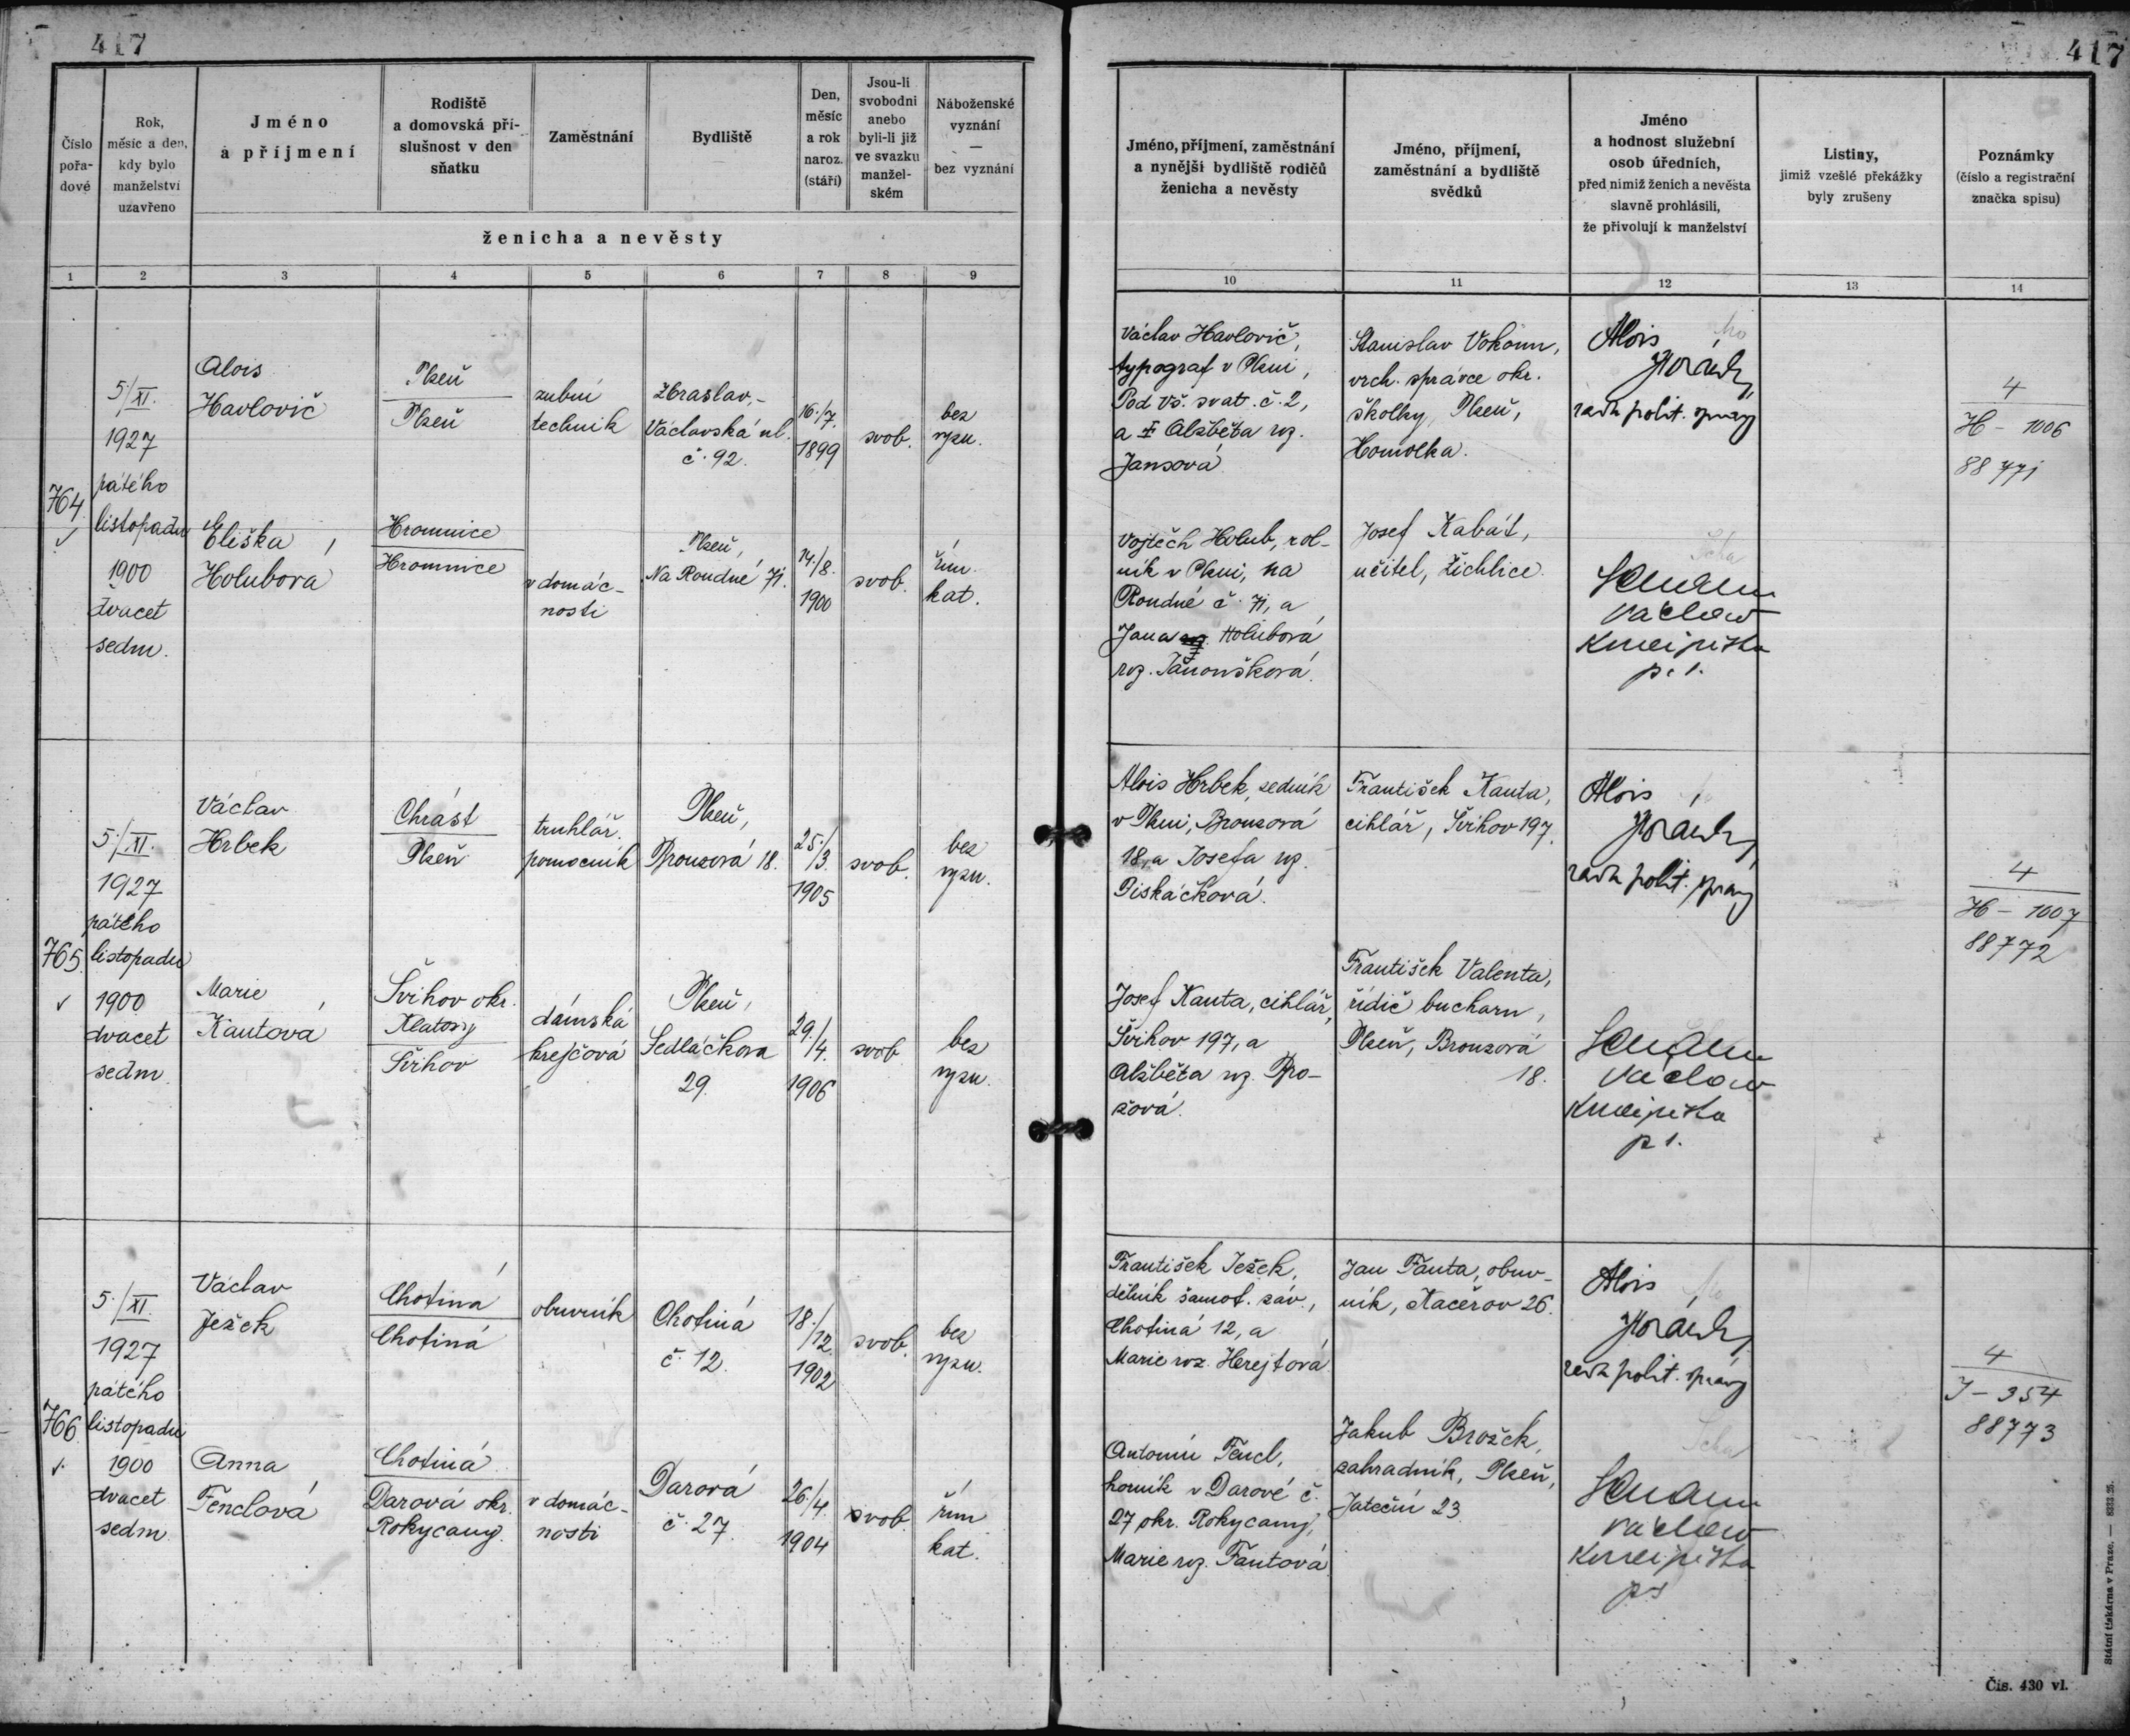 417
417
Číslo pořa-dové
Rok, měsíc a den, kdy bylo manželství uzavřeno
Jméno a příjmení
Rodiště a domovská pří-slušnost v den sňatku
Zaměstnání
Bydliště
Den, měsíc a rok naroz. (stáří)
Jsou-li svobodni anebo byli-li již ve svazku manžel-ském
Náboženské vyznání — bez vyznání
ženicha a nevěsty
Jméno, příjmení, zaměstnání a nynější bydliště rodičů ženicha a nevěsty
Jméno, příjmení, zaměstnání a bydliště svědků
Jméno a hodnost služební osob úředních, před nimiž ženich a nevěsta slavně prohlásili, že přivolují k manželství
Listiny, jimiž vzešlé překážky byly zrušeny
Poznámky (číslo a registrační značka spisu)
1 2 3 4 5 6 7 8 9 10 11 12 13 14
764.
5./XI.
1927
pátého
listopadu
1900
dvacet
sedm.
Alois
Havlovič
Plzeň
Plzeň
zubní
technik
Václavská ul.
č. 92.
16./7.
1899
svob.
bez
vyzn.
Václav Havlovič,
typograf v Plzni,
Pod Vš. svat. č. 2,
a † Alžběta roz.
Jansová
Stanislav Vokoun,
vrch. správce okr.
školky, Plzeň,
Homolka.
Alois
rada polit. správy
4
H - 1006
88771
Eliška
Holubová
Hromnice
Hromnice
v domác-
nosti
Plzeň,
Na Roudné 71.
14./8.
1900
svob.
řím.
kat.
Vojtěch Holub, rol-
ník v Plzni, na
Roudné č. 71, a
Jana Holubová
roz. Janoušková.
Josef Kabát,
učitel, Žichlice.
Václav
765.
5./XI.
1927
pátého
listopadu
1900
dvacet
sedm.
Václav
Hrbek
Chrást
Plzeň
truhlář.
pomocník
Plzeň,
Brouzová 18.
25./3.
1905
svob.
bez
vyzn.
Alois Hrbek, zedník
v Plzni, Brouzová
18, a Josefa roz.
Piskáčková.
František Kauta,
cihlář, Švihov 197.
Alois
rada polit. správy
4
H - 1007
88772
Marie
Kautová
Švihov okr.
Klatovy
Švihov
dámská
krejčová
Plzeň,
Sedláčkova
29.
29./4.
1906
svob.
bez
vyzn.
Josef Kauta, cihlář,
Švihov 197, a
Alžběta roz. Pro-
zová.
František Valenta,
řidič bucharu,
Plzeň, Brouzová
18.
Václav
766.
5./XI.
1927
pátého
listopadu
1900
dvacet
sedm.
Václav
Ježek
Chotiná
Chotiná
obuvník
Chotiná
č. 12.
18./12.
1902
svob.
bez
vyzn.
František Ježek,
dělník šamot. záv.,
Chotiná 12, a
Marie roz. Herejtová.
Jan Fauta, obuv-
ník, Kaceřov 26.
Alois
rada polit. správy
4
J - 354
88773
Anna
Fenclová
Chotiná
Darová okr.
Rokycany.
v domác-
nosti
Darová
č. 27.
26./4.
1904
svob.
řím.
kat.
Antonín Fencl,
horník v Darové č.
27 okr. Rokycany,
Marie roz. Fautová
Jakub Brožek,
zahradník, Plzeň,
Jateční 23.
Václav
Státní tiskárna v Praze. — 8333 26.
Čís. 430 vl.